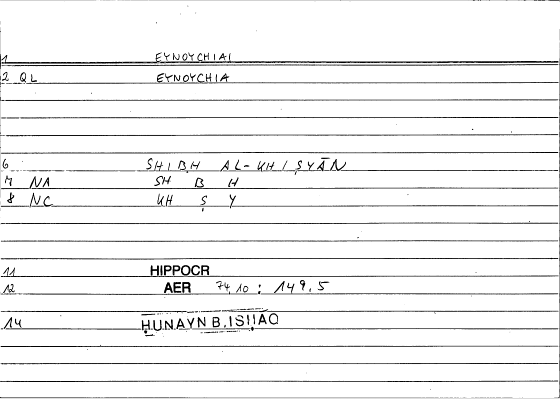 1 EYNOYCHIAI
2 QL EYNOYCHIA
6 SHIBH AL-KHIṢYĀN
7 NA SH B H
8 NC KH Ṣ Y
11 HIPPOCR
12 AER 74,10 : 149.5
14 ḤUNAYN B.ISḤĀQ